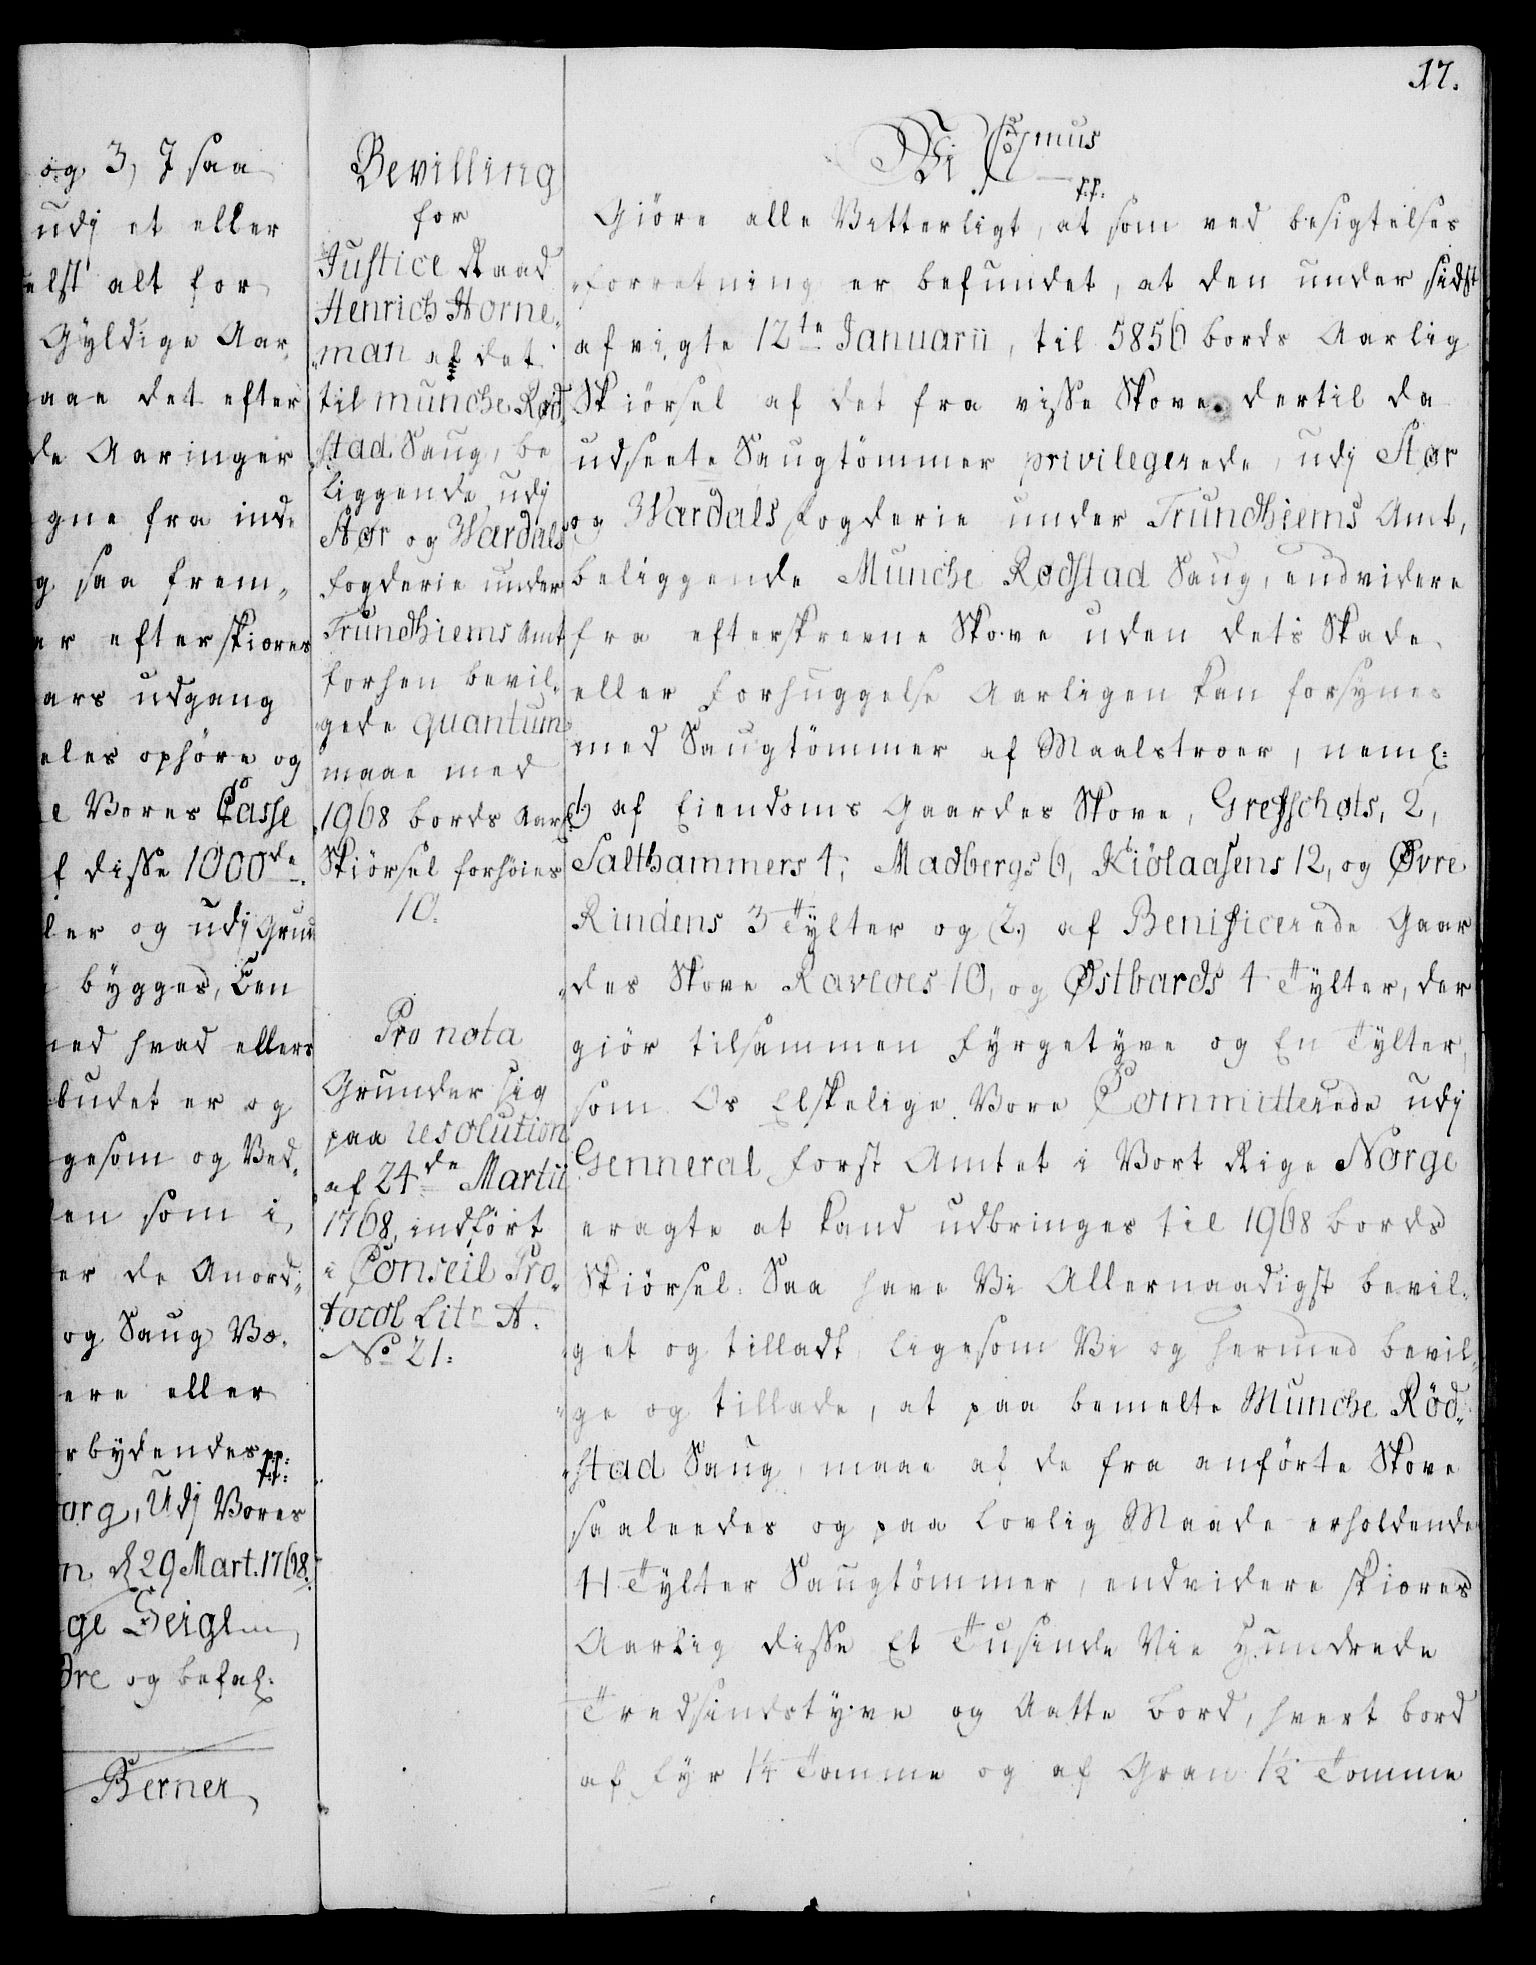 17.
og 3, J saa
udj et eller
elst alt for
Gyldige Aar,
aae det efter
de Aaringer
gne fra ind„
g saa frem„
er efterskiæres
ars udgang
eles ophøre og
e Vores Casse
f disse 1000de
ler og udj Grun
bygges, Een
med hvad ellers
budet er og
gesom og Ved„
en som i,
er de Anord„
og Saug Væ„
ere eller
rbydendes pp:
org, Udj Vores
n d 29 Mart. 1768.
ge Seigl
dre og befal:
Berner,
Bevilling
for
Justice Raad
Henrich Horne„
„man at det
til Munche Rød„
„stad Saug, be„
liggende udj
Stør og Værdals
Fogderie under
Trundhiems Amt
forhen bevil„
„gede quantum
maae med
1968 bords Aarl:
Skiørsel forhøies
10.
Pro nota
Grunder sig
paa resolution
af 24de Martii
1768, indført
i Conseil Pro„
„tocol Litr A.
No 21.
Vi C7mus
pp.
Giøre alle Vitterligt, at som ved besigtelses
„forretning er befundet, at den under sidst
afvigte 12te Januarii, til 5856 bords Aarlig
Skiørsel af det fra visse Skove dertil da
udseete Saugtømmer privilegerede, udj Stør
og Værdals Fogderie under Trundhiems Amt,
beliggende Munche Rødstad Saug, endvidere
fra efterskrevne Skove uden det's Skade
eller Forhuggelse Aarligen kan forsynes
med Saugtømmer af Maalstræer, neml:
1.) af Eiendoms Gaardes Skove, Gresschots, 2,
Salthammers 4, Madbergs 6, Kiölaasens 12, og Øvre
Rindens 3 Tylter og 2.) af Benificerede Gaar
„des Skove Ravloes 10, og Østbards 4 Tylter, der
giør tilsammen Fyrgetyve og En Tylter,
som Os Elskelige Vore Committerede udj
Genneral Forst Amtet i Vort Rige Norge
eragte at kand udbringes til 1968 bords
Skiørsel: Saa have Vi Allernaadigst bevil„
„get og tilladt, ligesom Vi og hermed bevil„
„ge og tillade, at paa bemelte Munche Rød„
„stad Saug, maae af de fra anførte Skove
saaleedes og paa Lovlig Maade erholdende
41 Tylter Saugtømmer, endvidere skiæres
Aarlig disse Et Tusinde Nie Hundrede
Tredsindstyve og Aatte Bord, hvert bord
af Fyr 1¼ Tomme og af Gran 1½ Tomme